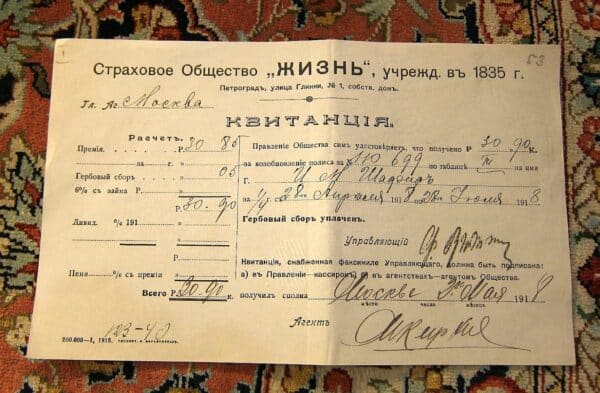 1
53
Страховое Общество „ЖИЗНЬ“, учрежд. въ 1835 г.
Петроградъ, улица Глинки, № 1, собств. домъ.
Гл. Аг. Москва
КВИТАНЦІЯ.
Расчетъ.
Премія. Р. 30 85
за г.
Гербовый сборъ „ 05
6% съ займа Р.
Р. 30-90
Дивид. % 191
Пени % съ преміи
Всего Р. 30.90 К.
123-40
200.000—1, 1916.
Правленіе Общества симъ удостовѣряетъ, что получено Р. 30 90 К.
за возобновленіе полиса за № 110 699 по таблицѣ III на имя
Г. И. М. Шафиръ
за 1/4 г. 28го Апрѣля 1918 28го Іюля 1918
Гербовый сборъ уплаченъ.
Управляющій
Квитанція, снабженная факсимиле Управляющаго, должна быть подписана:
а) въ Правленіи—кассиромъ; б) въ агентствахъ—агентомъ Общества.
получилъ сполна Москве 2го Мая 1918
мѣсто число мѣсяцъ
Агентъ